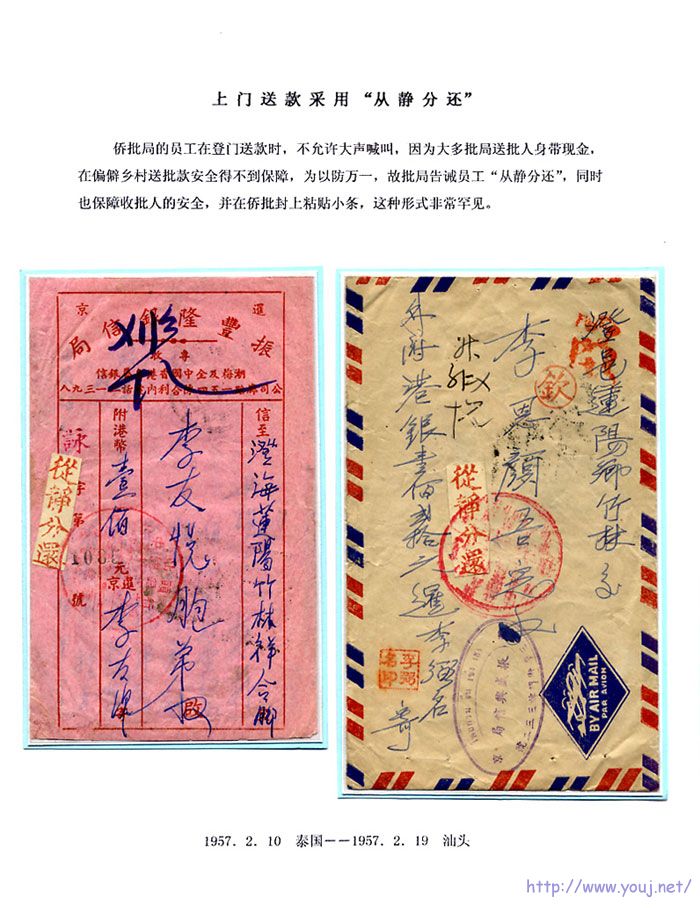 上门送款采用“从静分还”
侨批局的员工在登门送款时，不允许大声喊叫，因为大多批局送批人身带现金，
在偏僻乡村送批款安全得不到保障，为以防万一，故批局告诫员工“从静分还”，同时
也保障收批人的安全，并在侨批封上粘贴小条，这种形式非常罕见。
暹 京
振豐隆銀信局
信至
澄海蓮陽竹林祥合腳
李友悦胞弟啟
附港幣
壹佰
元
暹京
李友
詠字第
號
從靜分還
澄邑蓮陽鄉竹林交
李思顏吾
欽
外附港銀壹佰
從靜分還
李弼名印
BY AIR MAIL
PAR AVION
1957. 2. 10 泰国——1957. 2. 19 汕头
http://www.youj.net/